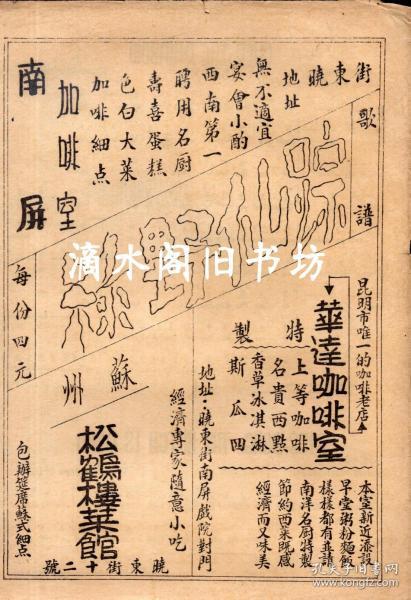 街東曉
地址
無不適宜
宴會小酌
西南第一
聘用名厨
壽喜蛋糕
色白大菜
加啡細点
加啡室
南屏
歌譜
綠野仙踪
每份四元
昆明市唯一的咖啡老店
華達咖啡室
特製
上等咖啡
名貴西點
香草冰淇淋
斯瓜因
本室新近添設
早堂粥粉麵飯
樣樣都有并請
南洋名厨特製
節約西菜既感
經濟而又味美
地址·曉東街南屏戲院對門
蘇州
松鶴樓菜館
經濟專家隨意小吃
包辦筵席蘇式細点
曉東街十二號
滴水阁旧书坊
孔夫子旧书网